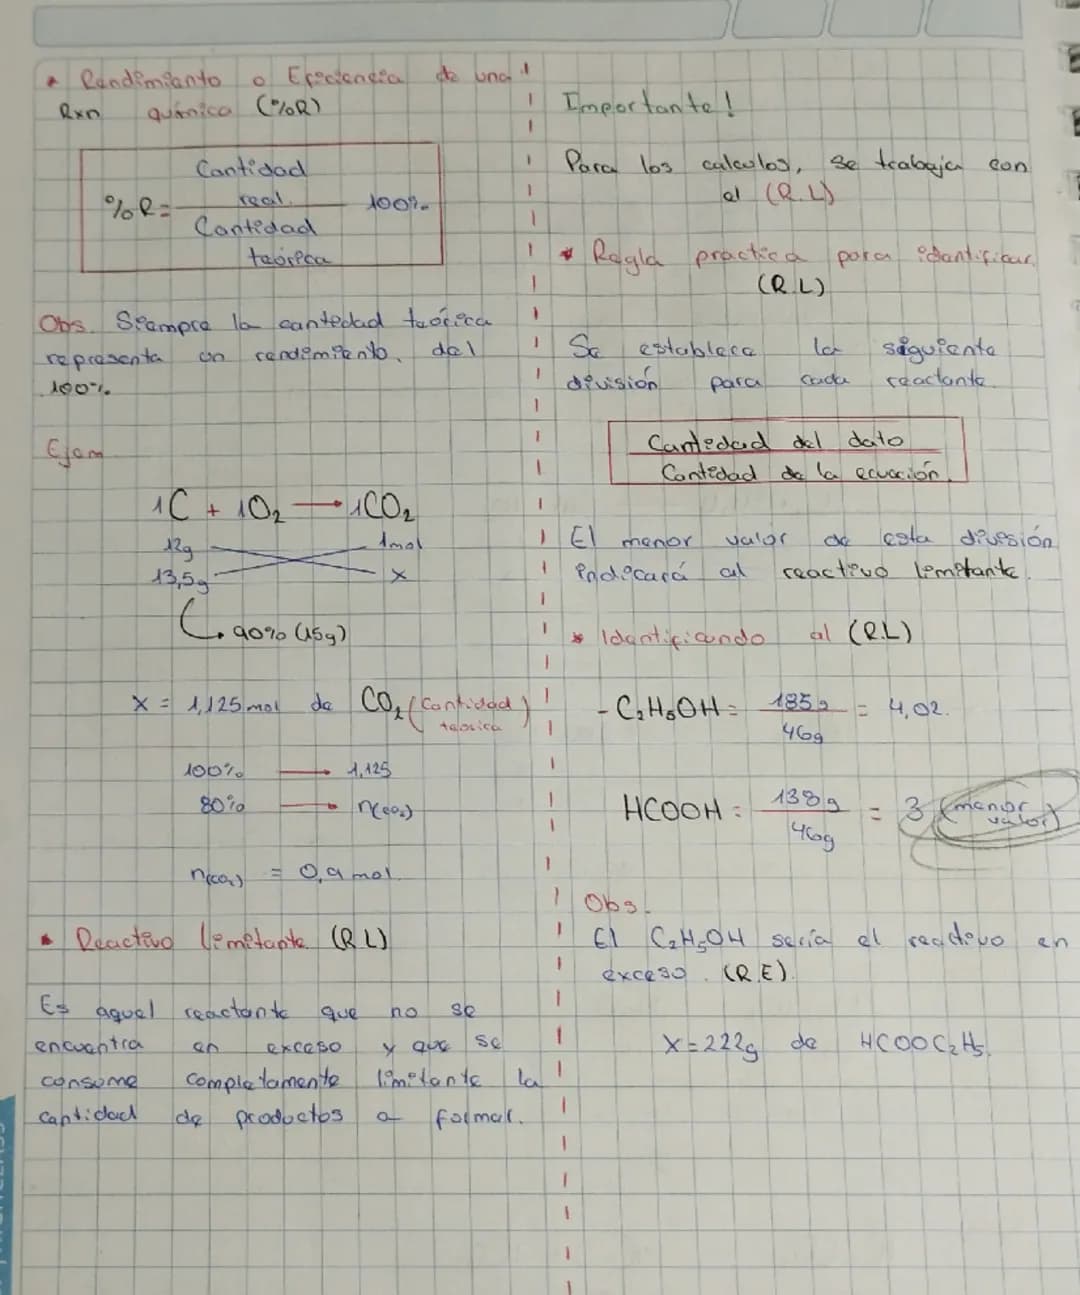 * Rendimiento o Eficiencia de una
Rxn química (%R)
%R = Cantidad real / Cantidad teórica 100%
Obs. Siempre la cantidad teórica
representa un rendimiento. del
100%
Ejem
1C + 1O₂ → 1CO₂
12g 1mol
13,5g x
90% (15g)
x = 1,125 mol de CO₂ (Cantidad teórica)
100% → 1,125
80% → n(CO₂)
n(CO₂) = 0,9 mol.
• Reactivo limitante (RL)
Es aquel reactante que no se
encuentra en exceso y que se
consume completamente limitante la
cantidad de productos a formar.
Importante!
Para los calculos, se trabaja con
el (R.L)
* Regla practica para identificar
(R.L)
Se establece la siguiente
división para cada reactante.
Cantidad del dato
Cantidad de la ecuación.
El menor valor de esta división
indicará al reactivo limitante.
* Identificando al (R.L)
- C₂H₅OH = 185g / 46g = 4,02.
HCOOH = 138g / 46g = 3 (menor valor)
Obs.
El C₂H₅OH sería el reactivo en
exceso. (R.E)
x = 222g de HCOOC₂H₅.